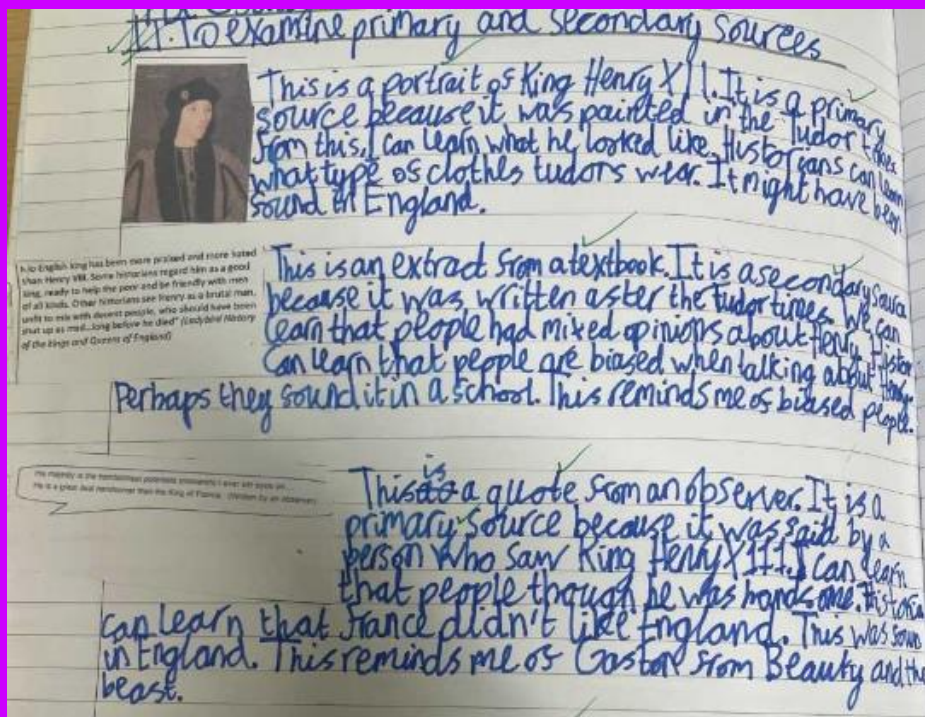 To examine primary and secondary sources
This is a portrait of King Henry XII. It is a primary
source because it was painted in the Tudor times
from this, I can learn what he looked like. Historians can learn
what type of clothes tudors wear. It might have been
found in England.
No English king has been more praised and more hated
than Henry VIII. Some historians regard him as a good
king, ready to help the poor and be friendly with men
of all kinds. Other historians see Henry as a brutal man,
unfit to mix with decent people, who should have been
shut up as mad...long before he died" (Ladybird History
of the Kings and Queens of England)
This is an extract from a textbook. It is a secondary source
because it was written after the tudor times. We can
learn that people had mixed opinions about Henry. Histori
Can learn that people are biased when talking about Henry.
Perhaps they found it in a school. This reminds me of biased people.
His majesty is the handsomest potentate I ever set eyes on
He is a great deal handsomer than the King of France. (Written by an observer)
This is a quote from an observer. It is a
primary source because it was said by a
person who saw King Henry XIII. I can learn
that people though he was handsome. Historia
can learn that France didn't like England. This was foun
in England. This reminds me of Gaston from Beauty and the
beast.